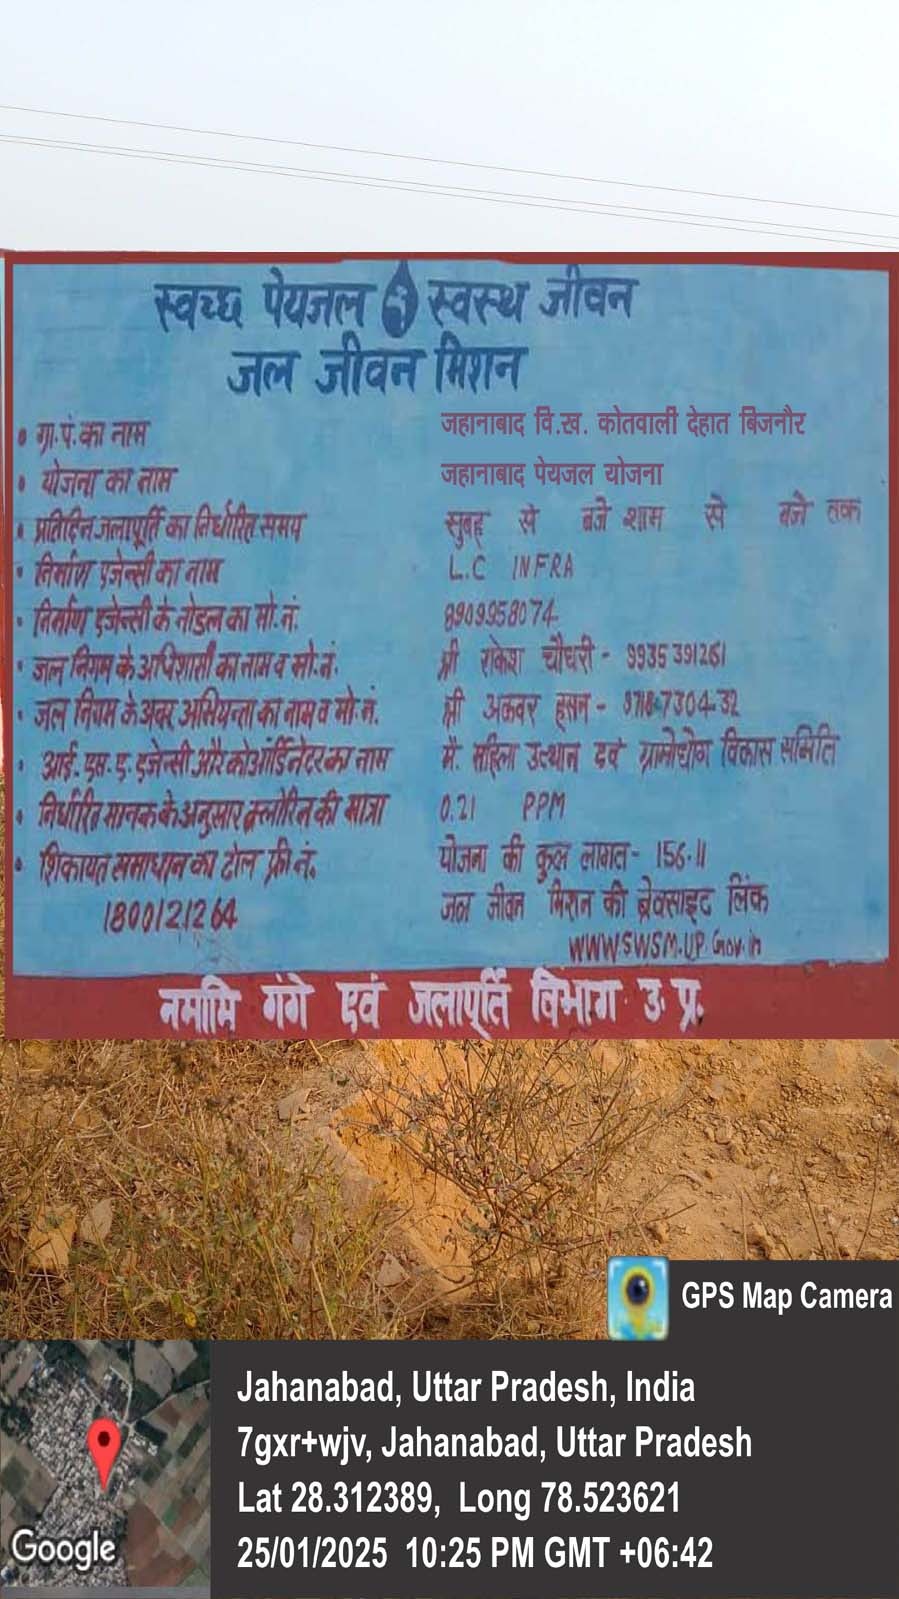 स्वच्छ पेयजल स्वस्थ जीवन
जल जीवन मिशन
ग्रा.पं.का नाम जहानाबाद वि.ख. कोतवाली देहात बिजनौर
योजना का नाम जहानाबाद पेयजल योजना
प्रतिदिन जलापूर्ति का निर्धारित समय सुबह से बजे शाम से बजे तक
निर्माण एजेन्सी का नाम L.C INFRA
निर्माण एजेन्सी के नोडल का मो.नं. 8909958074
जल निगम के अधिशासी का नाम व मो.नं. श्री राकेश चौधरी - 9935391261
जल निगम के अवर अभियन्ता का नाम व मो.नं. श्री अकवर हसन -
आई.एस.ए. एजेन्सी और कोऑर्डिनेटर का नाम मै. महिला उत्थान एवं ग्रामोद्योग विकास समिति
निर्धारित मानक के अनुसार क्लोरिन की मात्रा 0.21 PPM
शिकायत समाधान का टोल फ्री नं. योजना की कुल लागत- 156.11
1800121264 जल जीवन मिशन की बेवसाइट लिंक
WWW.SWSM.UP.Gov.in
नमामि गंगे एवं जलापूर्ति विभाग उ.प्र.
GPS Map Camera
Jahanabad, Uttar Pradesh, India
7gxr+wjv, Jahanabad, Uttar Pradesh
Lat 28.312389, Long 78.523621
25/01/2025 10:25 PM GMT +06:42
Google